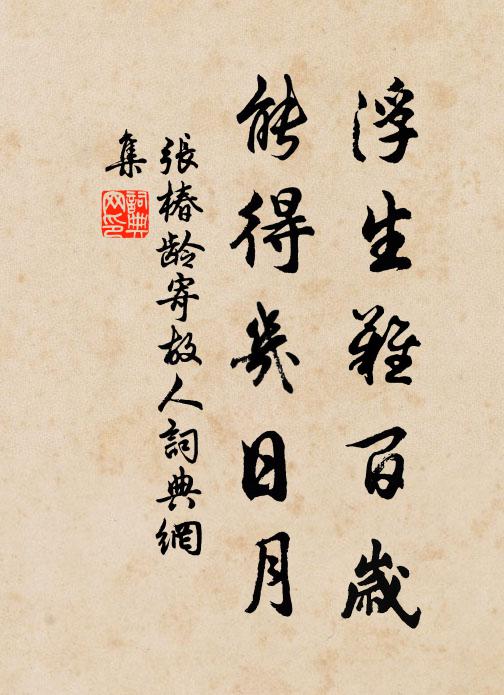 浮生難百歲
能得幾日月
張椿齡寄故人詞典網
集
詞典
网印